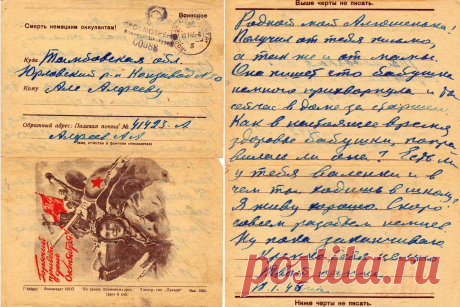 Смерть немецким оккупантам!
Воинское
ПРОСМОТРЕНО
Куда Тамбовская обл.
Юрловский р-н
Кому Але Алфееву
Обратный адрес: Полевая почта № 41423 А
Алфеев А.А.
Горячий
привет
героям
Выше черты не писать.
Родной мой Алюшенька!
Получил от тебя письмо,
а так же и от мамы.
Она пишет что бабушка
немного прихворнула и ты
сейчас в доме за старшего.
Как в настоящее время
здоровье бабушки, попра
вилась ли она? Есть ли
у тебя валенки и в
чем ты ходишь в школу?
Я живу хорошо. Скоро
совсем разобьем немцев.
Ну пока заканчиваю
Ниже черты не писать.